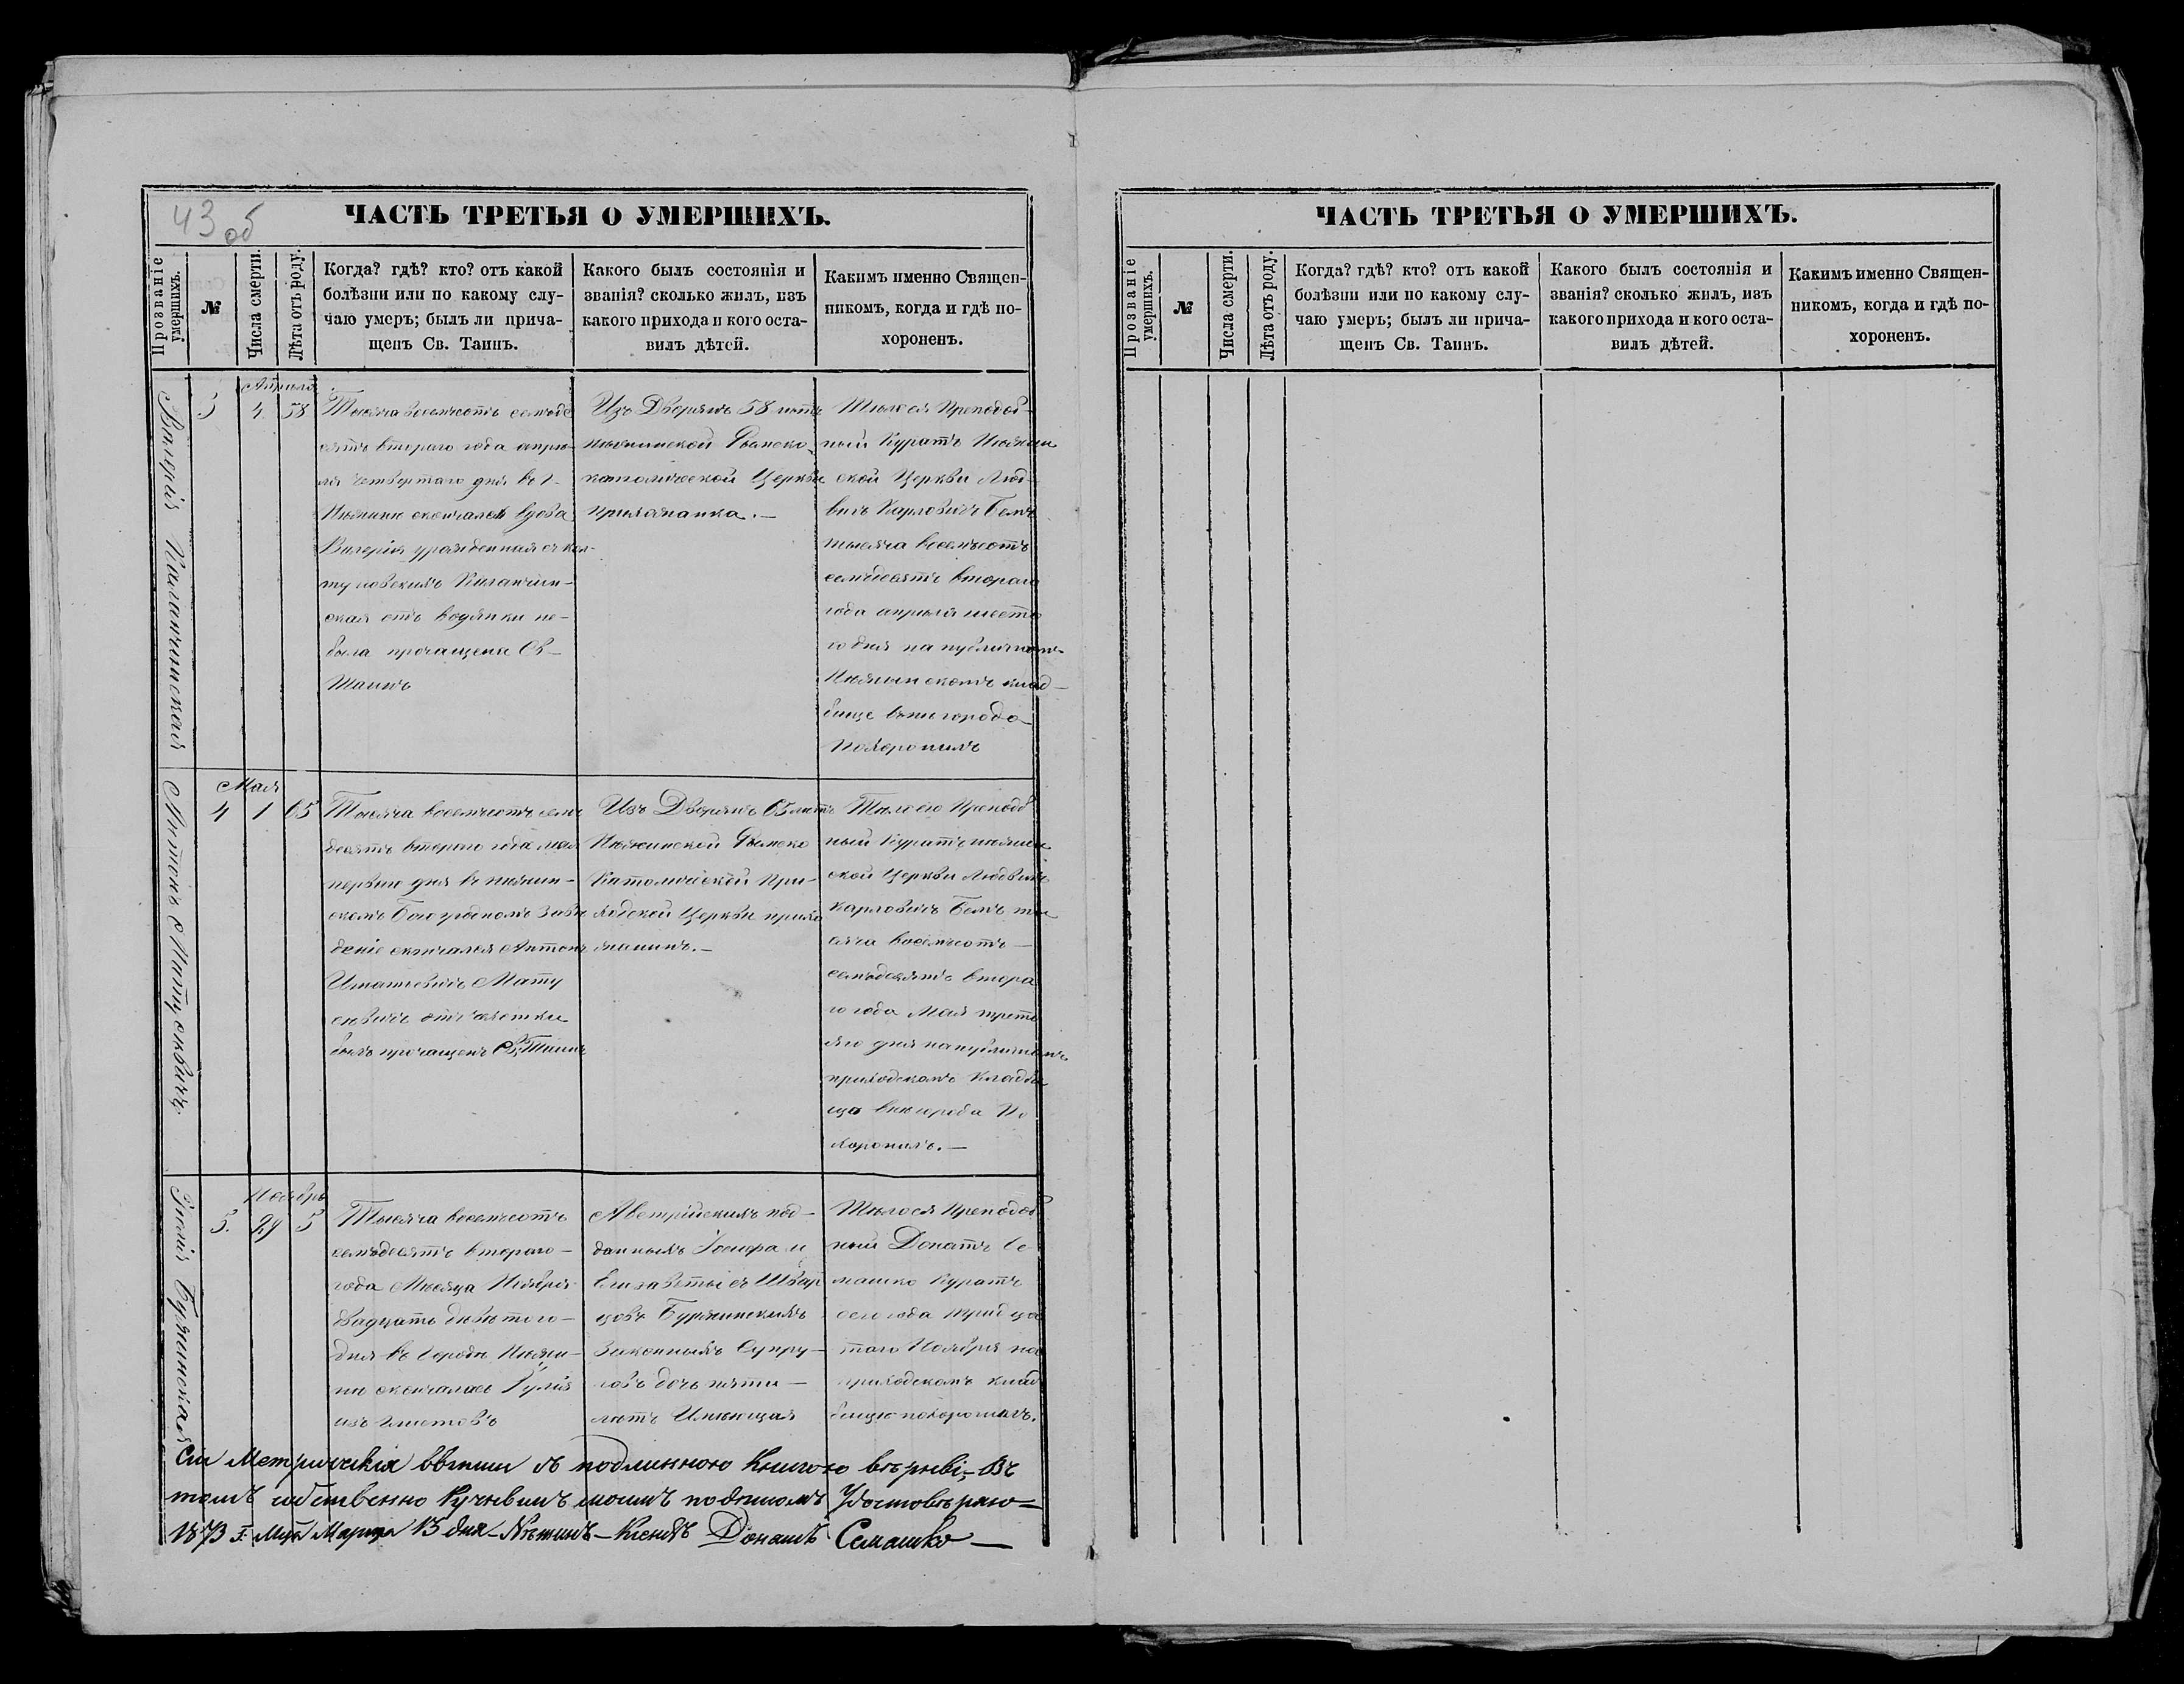 43 об
ЧАСТЬ ТРЕТЬЯ О УМЕРШИХЪ.
Прозваніе умершихъ.
№
Числа смерти.
Лѣта отъ роду.
Когда? гдѣ? кто? отъ какой
болѣзни или по какому слу-
чаю умеръ; былъ ли прича-
щенъ Св. Таинъ.
Какого былъ состоянія и
званія? сколько жилъ, изъ
какого прихода и кого оста-
вилъ дѣтей.
Какимъ именно Священ-
никомъ, когда и гдѣ по-
хороненъ.
Валерія
Апрѣля
3
4.
58
Тысяча восемьсотъ семьде
сятъ втораго года апрѣ-
ля четвертаго дня въ г-
Нѣжинѣ скончалась вдова
Валерія урожденная
ская отъ водянки не-
была причащена Св-
Таинъ
Изъ Дворянъ 58 лѣтъ
нѣжинской Римско
католической Церкви
прихожанка.-
Тѣло ея Преподоб-
ный Куратъ Нѣжин
ской Церкви Люд-
вигъ Карловичъ
тысяча восемьсотъ
семьдесятъ втораго
года апрѣля шеста
го дня на публичномъ
Нѣжинскомъ клад-
бище внѣ города
Похоронилъ
Антонъ Матусевичъ
Мая
4
1
65
Тысяча восемьсотъ семь
десятъ втораго года мая
перваго дня въ нѣжин-
скомъ Богоугодномъ Заве
деніе скончался Антонъ
Игнатіевичъ Мату
севичъ отъ чахотки
былъ причащенъ Св. Таинъ
Изъ Дворянъ 65 лѣтъ
Нѣжинской Римско
Католической При-
ходской Церкви прихо
жанинъ.-
Тѣло его Преподоб
ный Куратъ нѣжин
ской Церкви Людвигъ
Карловичъ ты
сяча восемьсотъ-
семьдесятъ втора
го года Мая треть
яго дня на публичномъ
приходскомъ кладби
ща внѣ города По
хоронилъ.-
Юлія Буржинская
Ноября
5.
29
5
Тысяча восемьсотъ
семьдесятъ втораго-
года Мѣсяца Ноября
двадцать девятого-
дня въ городѣ Нѣжи-
нѣ скончалась Юлія
изъ глистовъ
Австрійскихъ под-
данныхъ Іосифа и
Елизаветы съ Швар
цовъ Буржинскихъ
Законныхъ Супру-
говъ дочь пяти-
лѣтъ Имѣющая
Тѣло ея Преподоб
ный Донатъ Се
машко Куратъ
сего года тридца
таго Ноября на
приходскомъ клад
бище похоронилъ.
Сіи Метрическія выписи съ подлинною Книгою вѣрны,- Въ
томъ собственно ручнымъ моимъ подписомъ Удостовѣряю-
1873 г. Мца Марта 13 дня- Нѣжинъ- Ксендзъ Донатъ Семашко-
ЧАСТЬ ТРЕТЬЯ О УМЕРШИХЪ.
Прозваніе умершихъ.
№
Числа смерти.
Лѣта отъ роду.
Когда? гдѣ? кто? отъ какой
болѣзни или по какому слу-
чаю умеръ; былъ ли прича-
щенъ Св. Таинъ.
Какого былъ состоянія и
званія? сколько жилъ, изъ
какого прихода и кого оста-
вилъ дѣтей.
Какимъ именно Священ-
никомъ, когда и гдѣ по-
хороненъ.